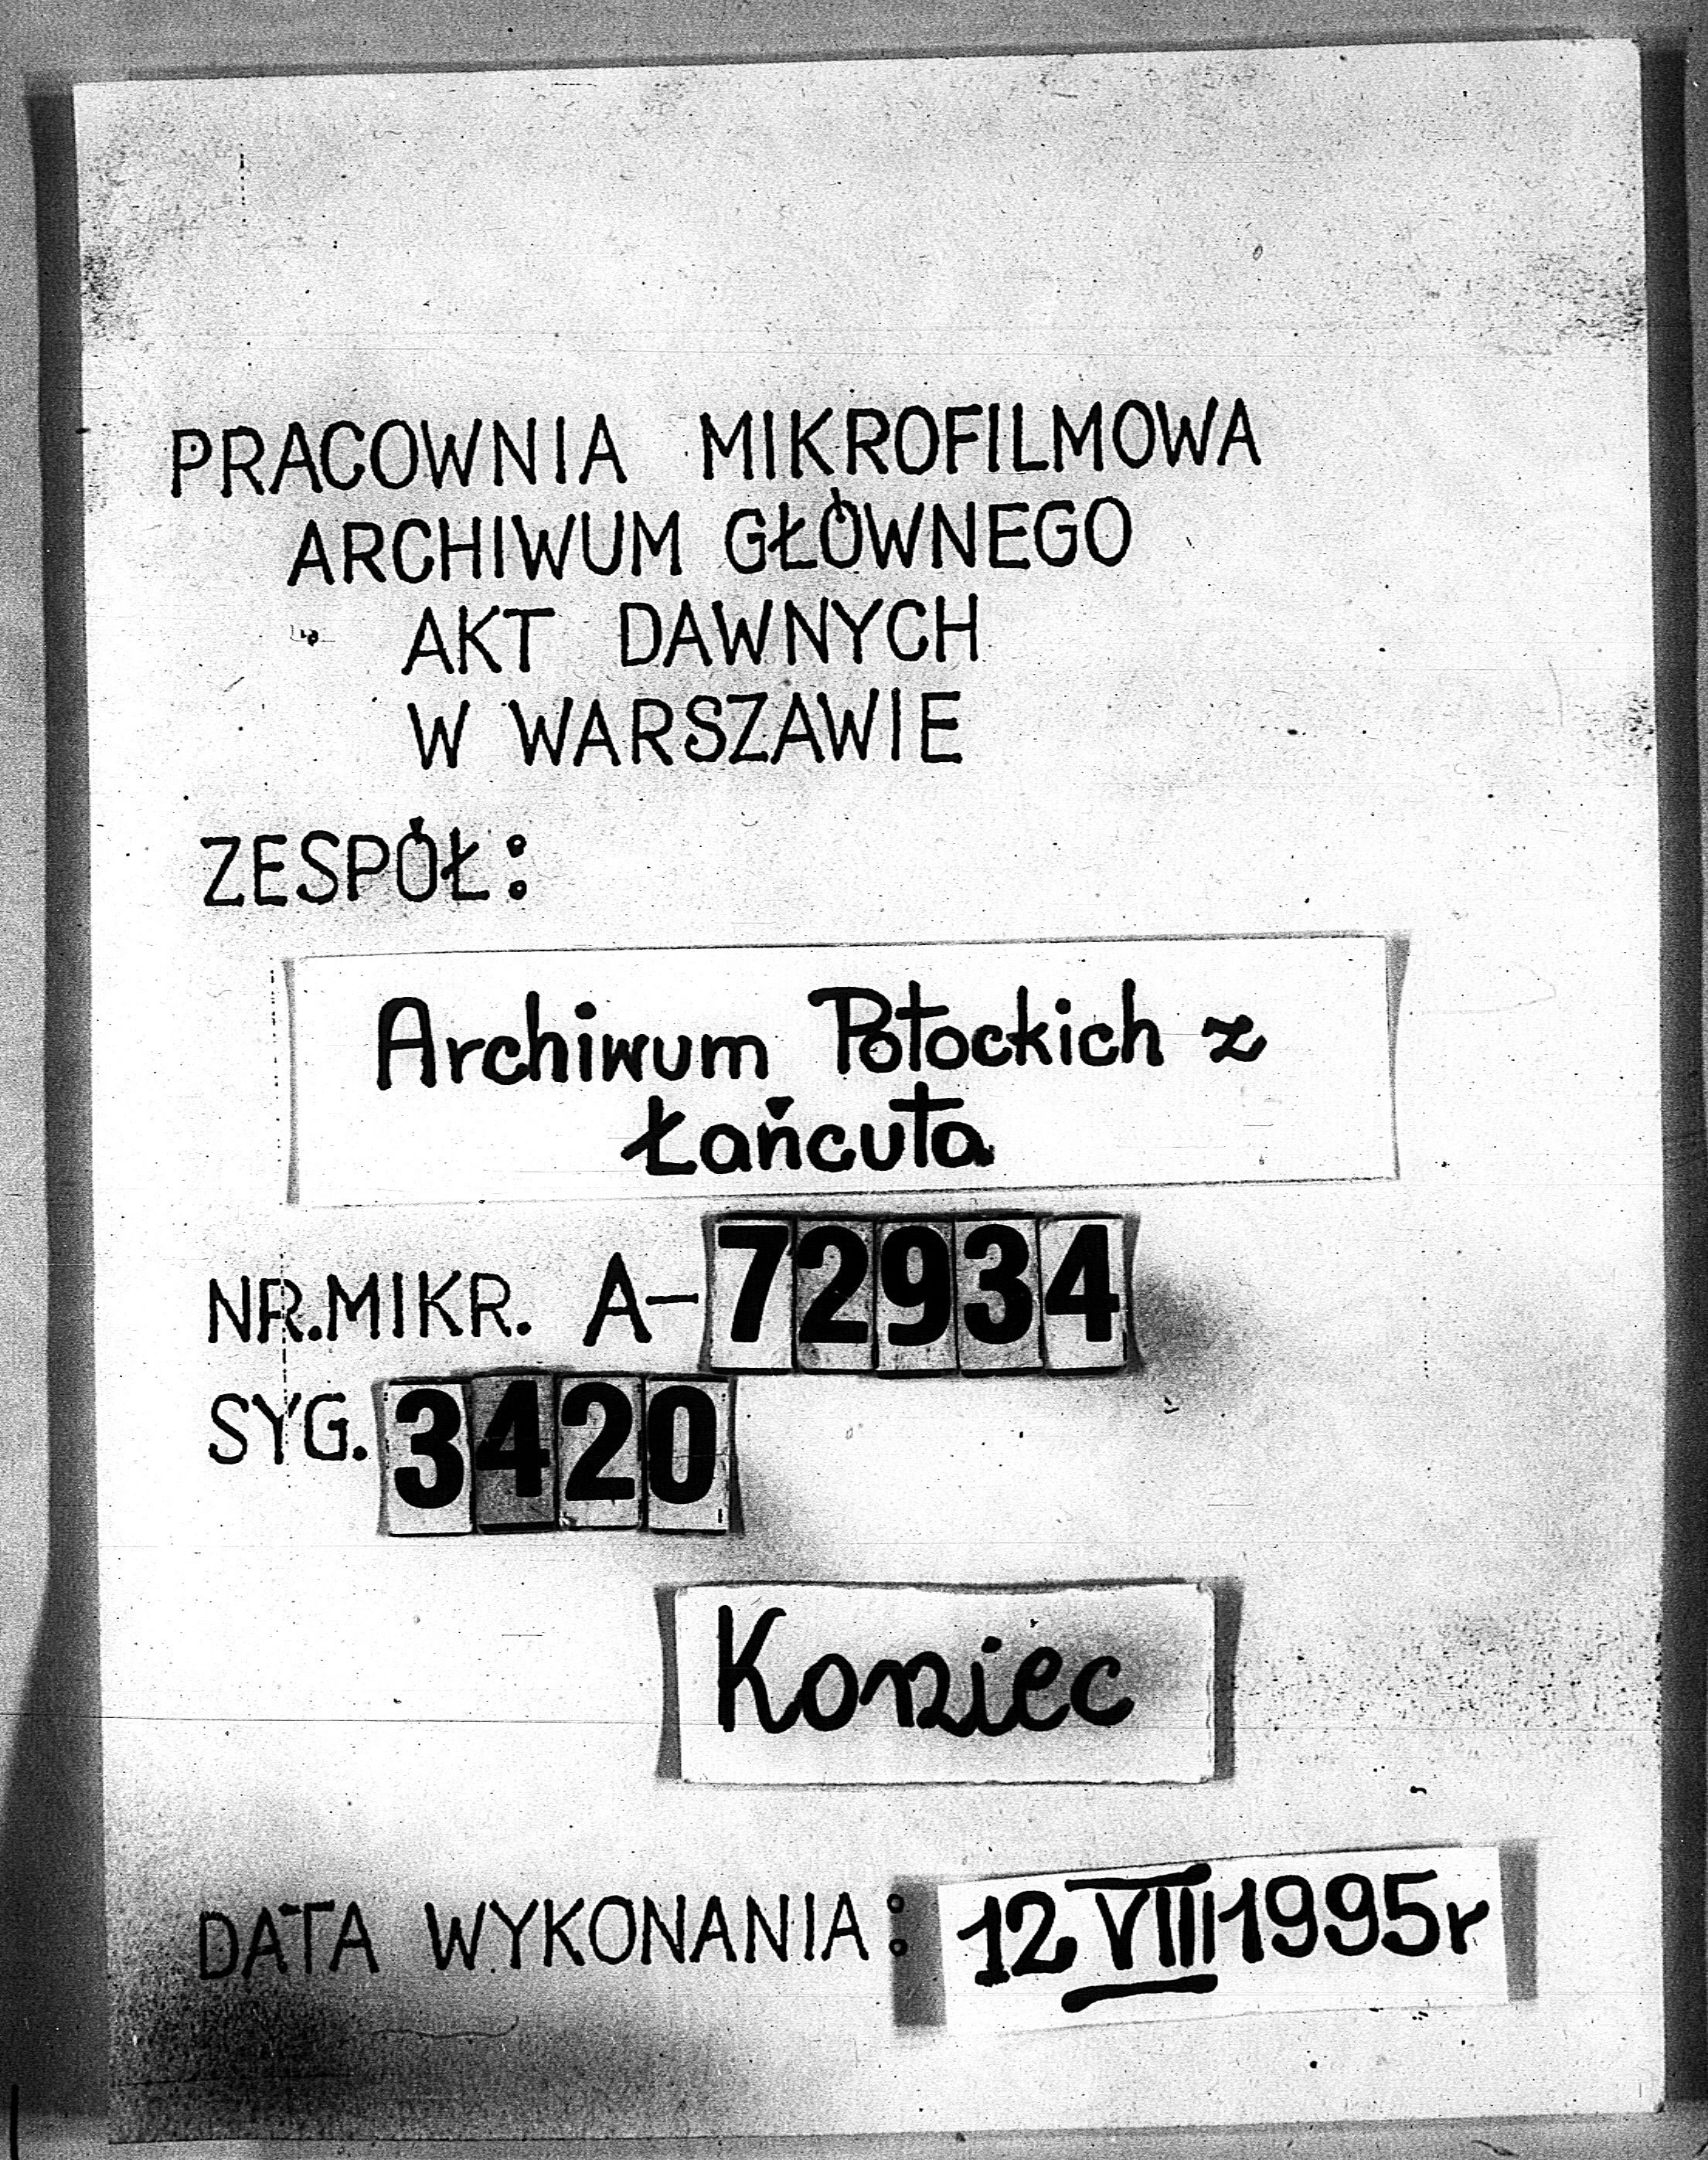 PRACOWNIA MIKROFILMOWA
ARCHIWUM GŁÓWNEGO
AKT DAWNYCH
W WARSZAWIE
ZESPÓŁ:
Archiwum Potockich z
Łańcuta
NR.MIKR. A-72934
SYG. 3420
Koniec
DATA WYKONANIA: 12 VIII 1995r